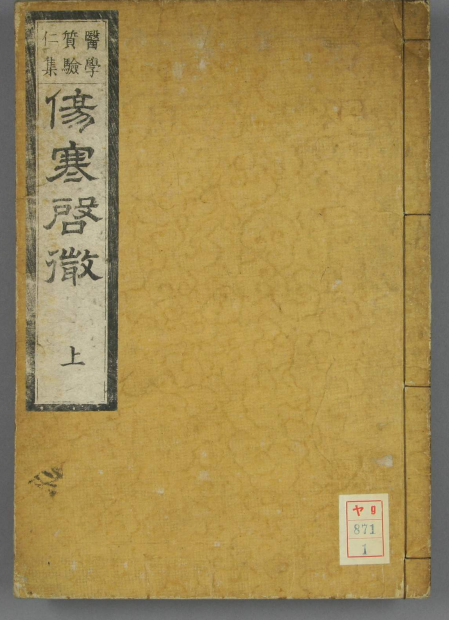 醫學
質驗
仁集
傷寒啓微
上
ヤ9
871
1